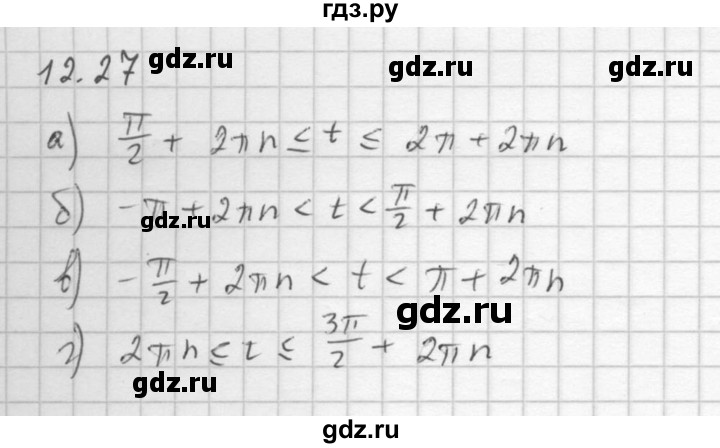 гдз.ру
12.27 gdz.ru gdz.ru gdz.ru
а) π/2 + 2πn ≤ t ≤ 2π + 2πn
б) -π + 2πn < t < π/2 + 2πn
gdz.ru
в) -π/2 + 2πn < t < π + 2πn
gdz.ru
г) 2πn ≤ t ≤ 3π/2 + 2πn
gdz.ru
gdz.ru gdz.ru